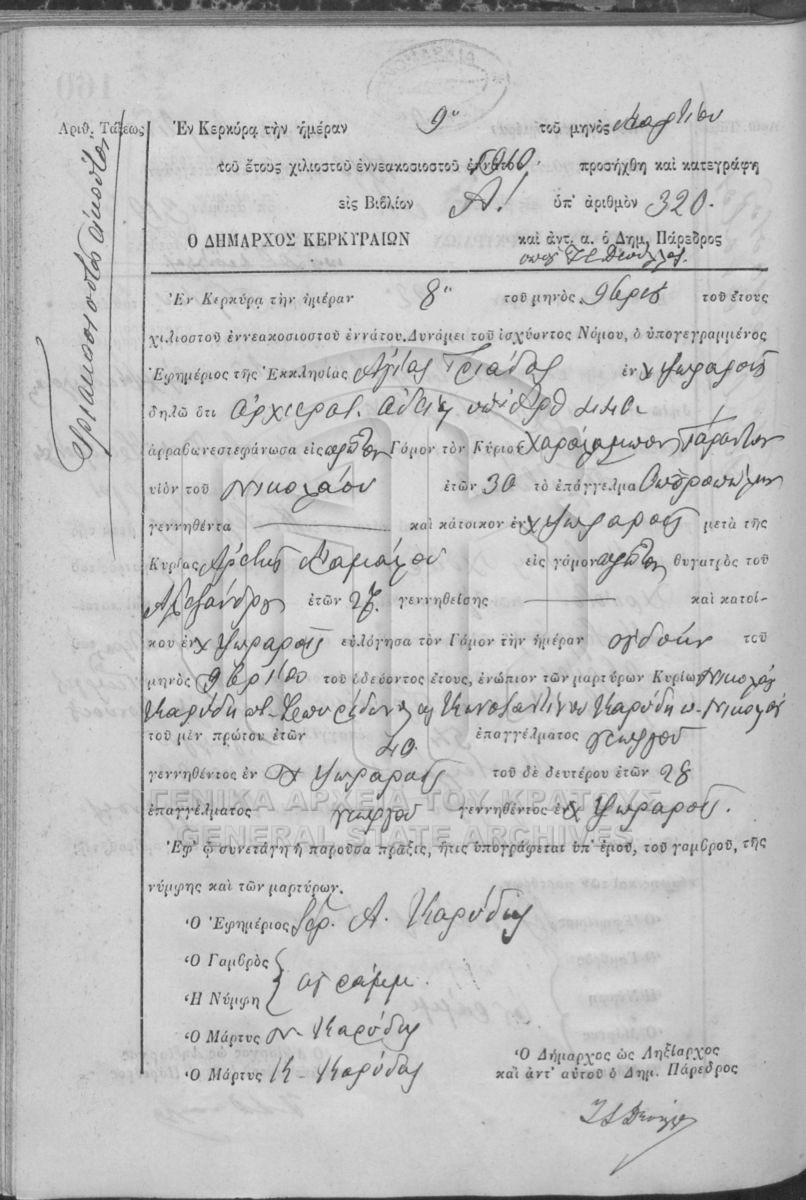 Ἀριθ. Τάξεως
Τριακοσιοστὸς εἰκοστὸς
Ἐν Κερκύρᾳ τὴν ἡμέραν 9ην τοῦ μηνὸς Μαρτίου
τοῦ ἔτους χιλιοστοῦ ἐννεακοσιοστοῦ ἐννάτου 1910. προσήχθη καὶ κατεγράφη
εἰς Βιβλίον Α! ὑπ' ἀριθμὸν 320.
Ο ΔΗΜΑΡΧΟΣ ΚΕΡΚΥΡΑΙΩΝ καὶ ἀντ. α. ὁ Δημ. Πάρεδρος
Ἐν Κερκύρᾳ τὴν ἡμέραν 8ην τοῦ μηνὸς 9βρίου τοῦ ἔτους
χιλιοστοῦ ἐννεακοσιοστοῦ ἐννάτου. Δυνάμει τοῦ ἰσχύοντος Νόμου, ὁ ὑπογεγραμμένος
Ἐφημέριος τῆς Ἐκκλησίας Ἁγίας Τριάδος ἐν χ Ψωραροῖς
δηλῶ ὅτι ἀρχιερατ. ἀδείᾳ ὑπ' ἀριθ 440
ἀρραβωνεστεφάνωσα εἰς πρῶτον Γάμον τὸν Κύριον Χαράλαμπον
υἱὸν τοῦ Νικολάου ἐτῶν 30 τὸ ἐπάγγελμα
γεννηθέντα — καὶ κάτοικον ἐν χ Ψωραροῖς μετὰ τῆς
Κυρίας Ἀρέτης εἰς γάμον πρῶτον θυγατρὸς τοῦ
Ἀλεξάνδρου ἐτῶν 27 γεννηθείσης — καὶ κατοί-
κου ἐν χ Ψωραροῖς εὐλόγησα τὸν Γάμον τὴν ἡμέραν ὀγδόην τοῦ
μηνὸς 9βρίου τοῦ ὁδεύοντος ἔτους, ἐνώπιον τῶν μαρτύρων Κυρίων Νικολάου
Καρύδη π. Σπυρίδωνος καὶ Κωνσταντίνου Καρύδη π. Νικολάου
τοῦ μὲν πρώτου ἐτῶν 40 ἐπαγγέλματος γεωργοῦ
γεννηθέντος ἐν χ Ψωραροῖς τοῦ δὲ δευτέρου ἐτῶν 28
ἐπαγγέλματος γεωργοῦ γεννηθέντος ἐν χ Ψωραροῖς.
ΓΕΝΙΚΑ ΑΡΧΕΙΑ ΤΟΥ ΚΡΑΤΟΥΣ
GENERAL STATE ARCHIVES
Ἐφ' ᾧ συνετάγη ἡ παροῦσα πρᾶξις, ἥτις ὑπογράφεται ὑπ' ἐμοῦ, τοῦ γαμβροῦ, τῆς
νύμφης καὶ τῶν μαρτύρων.
Ὁ Ἐφημέριος Ἱερ. Α. Καρύδης
Ὁ Γαμβρὸς
ἀγράμμ.
Ἡ Νύμφη
Ὁ Μάρτυς Ν. Καρύδης
Ὁ Μάρτυς Κ. Καρύδης
Ὁ Δήμαρχος ὡς Ληξίαρχος
καὶ ἀντ' αὐτοῦ ὁ Δημ. Πάρεδρος